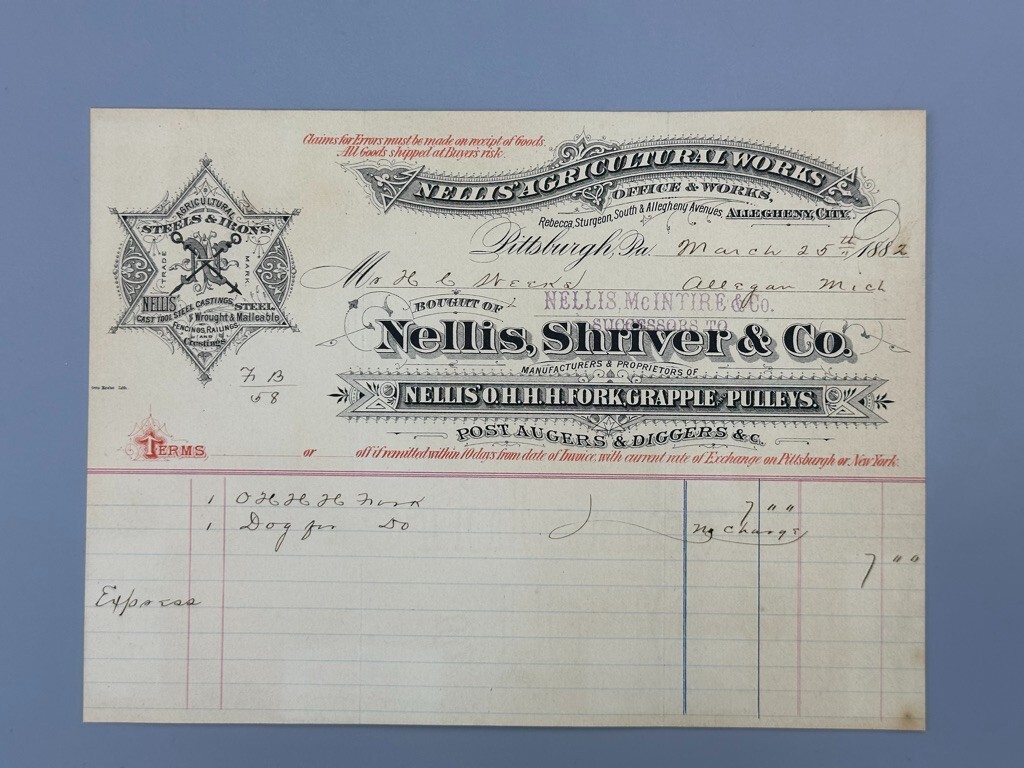 Claims for Errors must be made on receipt of Goods.
All Goods shipped at Buyers risk.
NELLIS' AGRICULTURAL WORKS
OFFICE & WORKS,
Rebecca, Sturgeon, South & Allegheny Avenues, ALLEGHENY, CITY.
Pittsburgh, Pa. March 25th 1882
Mr H C Weeks Allegan Mich
BOUGHT OF
NELLIS, McINTIRE & Co.
SUCCESSORS TO
Nellis, Shriver & Co.
MANUFACTURERS & PROPRIETORS OF
NELLIS' O.H.H.H. FORK, GRAPPLE AND PULLEYS.
POST AUGERS & DIGGERS & C.
AGRICULTURAL
STEELS & IRONS.
TRADE MARK
N
NELLIS' STEEL.
CAST TOOL STEEL CASTINGS,
& Wrought & Malleable
FENCINGS, RAILINGS,
AND
Crestings
F B
58
TERMS or off if remitted within 10 days from date of Invoice, with current rate of Exchange on Pittsburgh or New York.
1 O H H H Fork 7 " "
1 Dog for Do No Charge
7 " "
Express